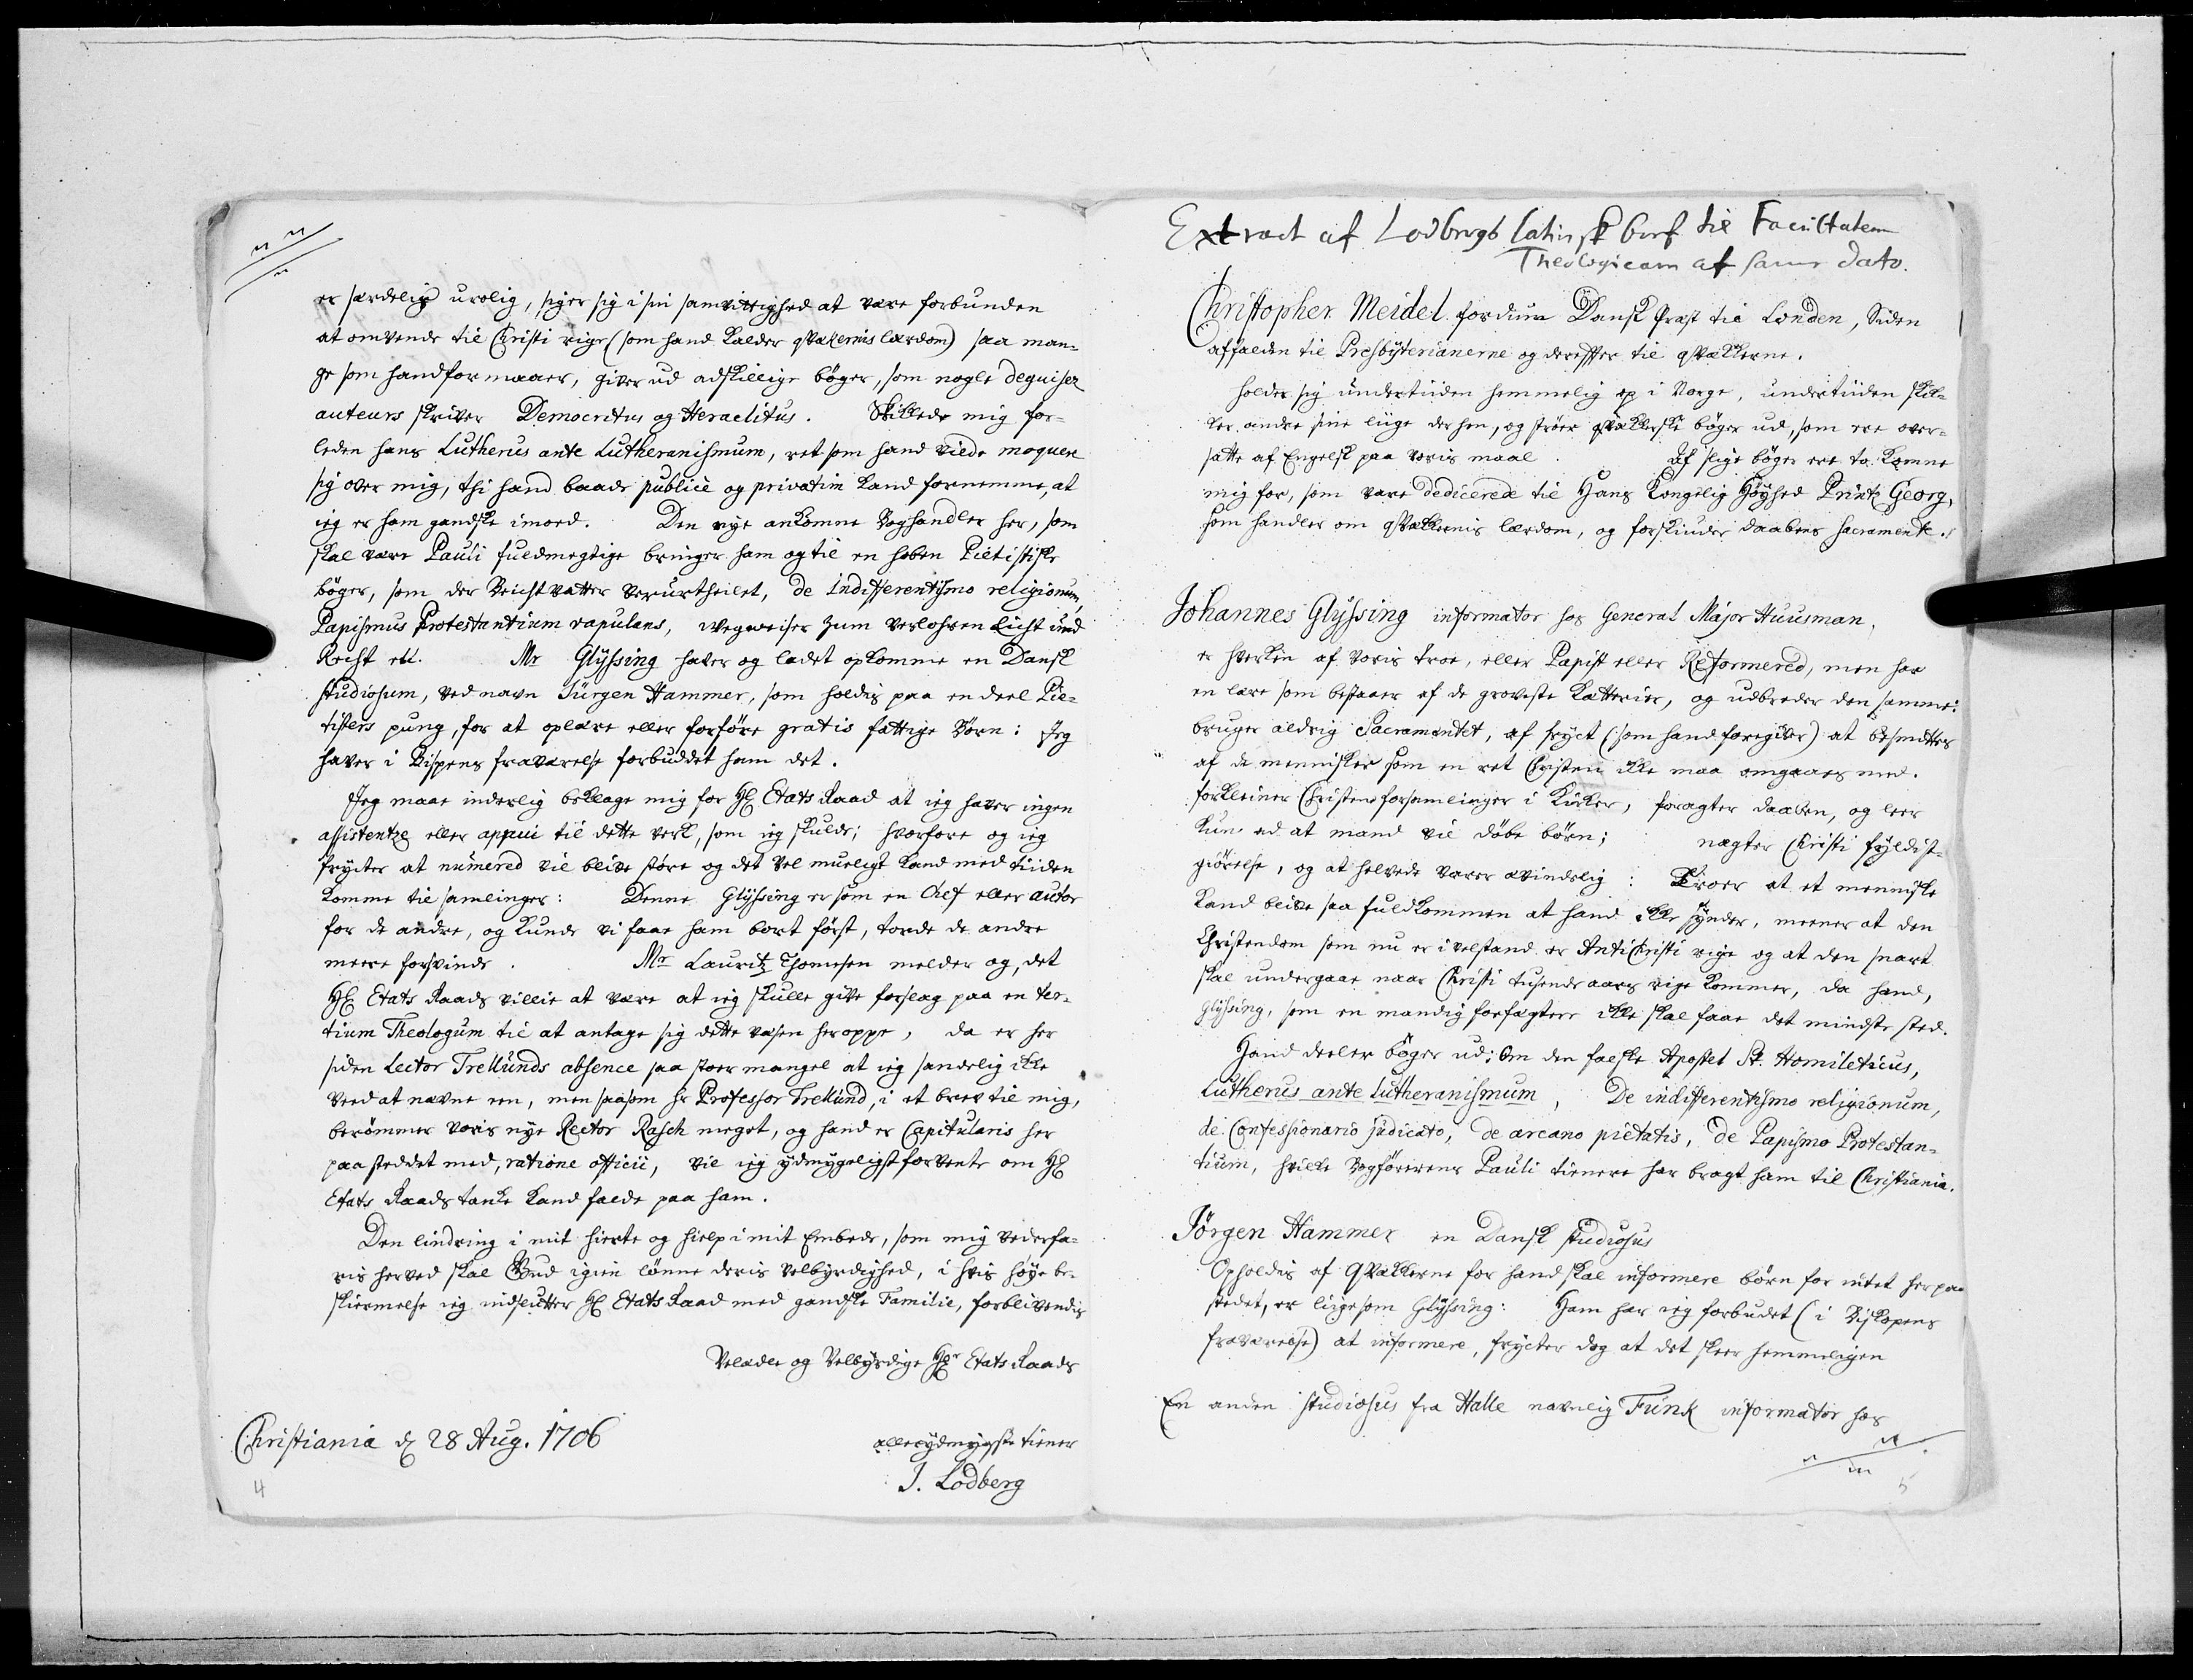 er særdelis urolig, siger sig i sin samvittighed at være forbunden
at omvende til Christi rige (som hand kalder qvakernis lærdom) saa man-
ge som hand formaaer, giver ud adskillige bøger, som nogle deguiser
auteurs skriver Democritus og Heraclitus. Skikkede mig for-
leden hans Lutherus ante Lutheranismum, ret som hand vilde moquere
sig over mig, thi hand baade publicè og privatim kand fornemme, at
ieg er ham gandske imoed. Den nye ankomne Boghandler her, som
skal være Pauli fuldmegtige bringer ham og til en hoben Pietistiske
bøger, som der Beichtvatter verurtheilet, de Indifferentismo religionum,
Papismus Protestantium vapulans, wegweiser zum verlohren Licht und
Recht etc. Mr Glÿssing haver og ladet opkomme en Dansk
studiosum, ved navn Jürgen Hammer, som holdis paa en deel Pie-
tisters pung, for at oplære eller forføre gratis fattige Børn: Jeg
haver i Bispens fraværelse forbuddet ham det.
Jeg maae inderlig beklage mig for H Etats Raad at ieg haver ingen
assistentze eller appui til dette verk, som ieg skulde; hvorfore og ieg
frycter at numered vil blive større og det vel mueligt kand med tiiden
komme til samlinger: Denne Glÿssing er som en Chef eller autor
for de andre, og kunde vi faae ham bort først, torde de andre
meere forsvinde. Mr Lauritz Thomesen melder og, det
H Etats Raads villie at være at ieg skulle give forslag paa en ter-
tium Theologum til at antage sig dette væsen her oppe, da er her
siden Lector Trellunds absence saa stoer mangel at ieg sandelig ikke
veed at nævne een, men saasom Hr Professor Trellund, i et brev til mig,
berømmer voris nye Rector Rasch meget, og hand er Capitularis her
paa steddet med, ratione officii, vil ieg ydmygeligst forvente om H
Etats Raads tanke kand falde paa ham.
Den lindring i mit hierte og hielp i mit Embede, som mig vederfa-
ris herved skal Gud igien lønne deris velbyrdighed, i hvis høye be-
skiermelse ieg indslutter H Etats Raad med gandske Familie, forblivendis
Velædle og Velbyrdige Hr Etats Raads
Christiania d 28 Aug. 1706
allerydmygste tiener
J. Lodberg
4
Extract af Lodbergs latinsk bref til Facultatem
Theologicam af samme dato.
Christopher Meidel fordum Dansk Præst til London, Siden
affalden til Presbyterianerne og derefter til qvækkerne.
holder sig undertiiden hemmelig op i Norge, undertiiden skik-
ker andre sine liige der hen, og strøer qvækkerske bøger ud, som ere over-
satte af Engelsk paa voris maal. Af slige bøger ere to komne
mig for, som vare dedicerede til Hans Kongelig Høyhed Printz Georg,
som handler om qvækkernis lærdom, og forskiuder daabens sacramente.
Johannes Glÿssing informator hos General Major Huusman,
er hverken af voris troe, eller Papist eller Reformered, men har
en lære som bestaaer af de groveste kætterier, og udbreder den samme:
bruger aldrig Sacramentet, af fryct (som hand foregiver) at besmittes
af de mennisker som en ret Christen ikke maa omgaaes med.
forkleiner Christens forsamlinger i Kirker, foragter daaben, og leer
kun ad at mand vil døbe børn; nægter Christi fyldist-
giørelse, og at helvede varer ævindelig: Troer at et menniske
kand blive saa fuldkommen at hand ikke synder, meener at den
Christendom som nu er i velstand er AntiChristi rige og at den snart
skal undergaae naar Christi tusende aars rige kommer, da hand,
Glÿssing, som en mandig forfægtere ikke skal faae det mindste sted.
Hand deeler bøger ud: Om den falske Apostel St. Homileticus,
Lutherus ante Lutheranismum, De indifferentismo religionum,
de Confessionario judicato, de arcano pietatis, de Papismo Protestan-
tium, hvilke Bogførerens Pauli tienere har bragt ham til Christiania.
Jörgen Hammer en Dansk studiosus
Opholdis af Qvækkerne for hand skal informere børn for intet her paa
stedet, er liigesom Glÿssing: Ham har ieg forbudet (i Biskopens
fraværelse) at informere, frycter dog at det skeer hemmeligen
En anden studiosus fra Halle navnlig Funk informator hos
5